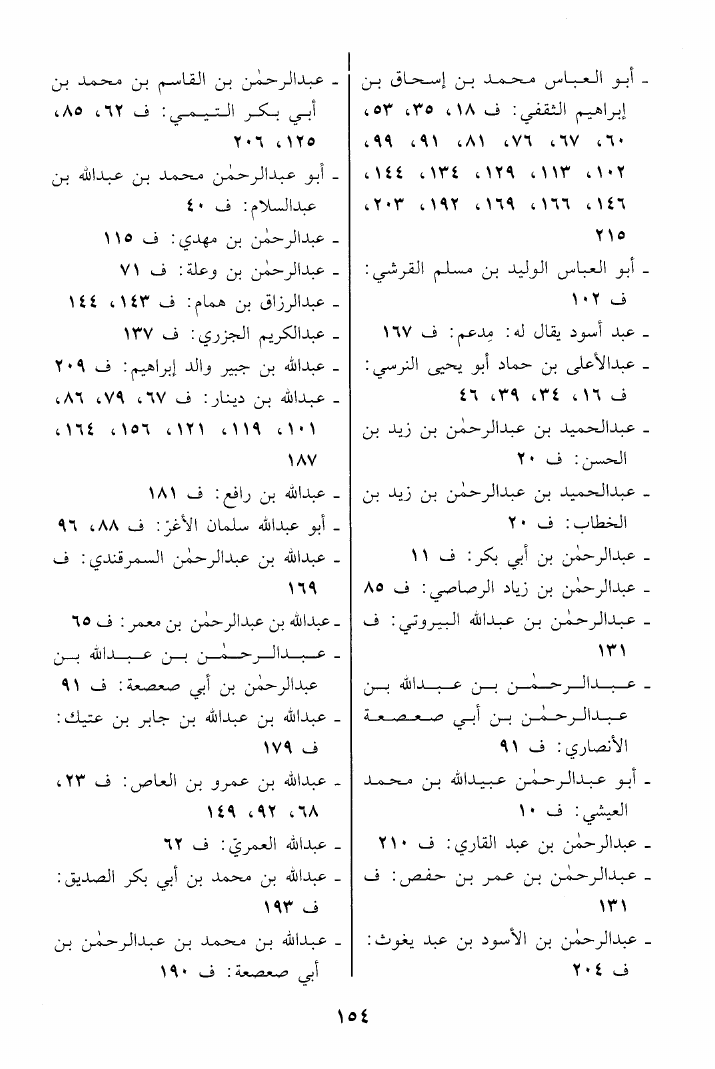 - أبو العباس محمد بن إسحاق بن
إبراهيم الثقفي: ف ١٨، ٣٥، ٥٣،
٦٠، ٦٧، ٧٦، ٨١، ٩١، ٩٩،
١٠٢، ١١٣، ١٢٩، ١٣٤، ١٤٤،
١٤٦، ١٦٦، ١٦٩، ١٩٢، ٢٠٣،
٢١٥
- أبو العباس الوليد بن مسلم القرشي:
ف ١٠٢
- عبد أسود يقال له: مِدعم: ف ١٦٧
- عبدالأعلى بن حماد أبو يحيى النرسي:
ف ١٦، ٣٤، ٣٩، ٤٦
- عبدالحميد بن عبدالرحمٰن بن زيد بن
الحسن: ف ٢٠
- عبدالحميد بن عبدالرحمٰن بن زيد بن
الخطاب: ف ٢٠
- عبدالرحمٰن بن أبي بكر: ف ١١
- عبدالرحمٰن بن زياد الرصاصي: ف ٨٥
- عبدالرحمٰن بن عبدالله البيروتي: ف
١٣١
- عبدالرحمٰن بن عبدالله بن
عبدالرحمٰن بن أبي صعصعة
الأنصاري: ف ٩١
- أبو عبدالرحمٰن عبيدالله بن محمد
العيشي: ف ١٠
- عبدالرحمٰن بن عبد القاري: ف ٢١٠
- عبدالرحمٰن بن عمر بن حفص: ف
١٣١
- عبدالرحمٰن بن الأسود بن عبد يغوث:
ف ٢٠٤
- عبدالرحمٰن بن القاسم بن محمد بن
أبي بكر التيمي: ف ٦٢، ٨٥،
١٢٥، ٢٠٦
- أبو عبدالرحمٰن محمد بن عبدالله بن
عبدالسلام: ف ٤٠
- عبدالرحمٰن بن مهدي: ف ١١٥
- عبدالرحمٰن بن وعلة: ف ٧١
- عبدالرزاق بن همام: ف ١٤٣، ١٤٤
- عبدالكريم الجزري: ف ١٣٧
- عبدالله بن جبير والد إبراهيم: ف ٢٠٩
- عبدالله بن دينار: ف ٦٧، ٧٩، ٨٦،
١٠١، ١١٩، ١٢١، ١٥٦، ١٦٤،
١٨٧
- عبدالله بن رافع: ف ١٨١
- أبو عبدالله سلمان الأغرّ: ف ٨٨، ٩٦
- عبدالله بن عبدالرحمٰن السمرقندي: ف
١٦٩
- عبدالله بن عبدالرحمٰن بن معمر: ف ٦٥
- عبدالرحمٰن بن عبدالله بن
عبدالرحمٰن بن أبي صعصعة: ف ٩١
- عبدالله بن عبدالله بن جابر بن عتيك:
ف ١٧٩
- عبدالله بن عمرو بن العاص: ف ٢٣،
٦٨، ٩٢، ١٤٩
- عبدالله العمريّ: ف ٦٢
- عبدالله بن محمد بن أبي بكر الصديق:
ف ١٩٣
- عبدالله بن محمد بن عبدالرحمٰن بن
أبي صعصعة: ف ١٩٠
١٥٤